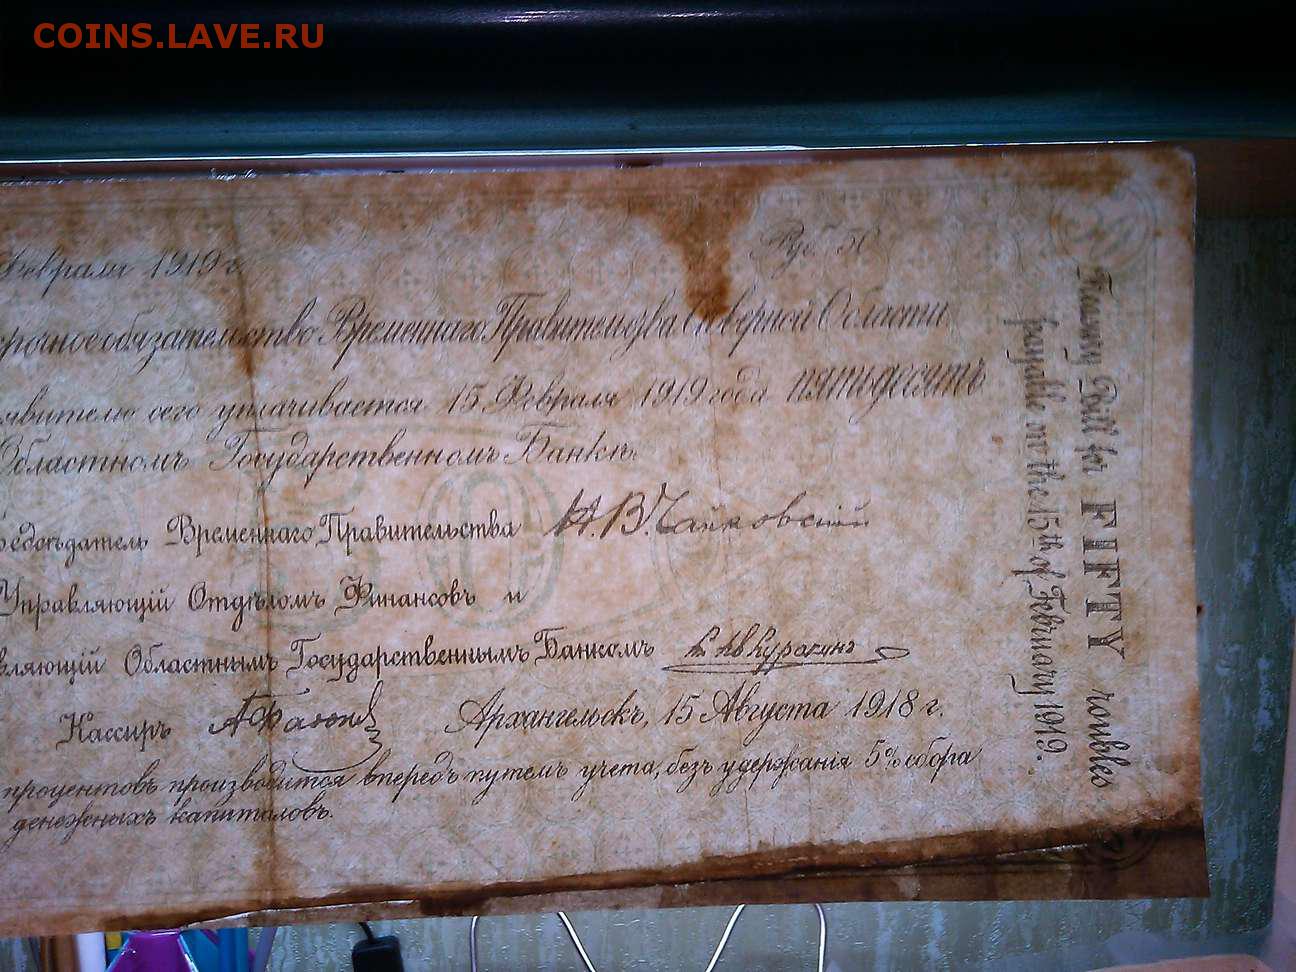 COINS.LAVE.RU
Февраля 1919 г.
Руб. 50
срочное обязательство Временнаго Правительства Северной Области
явителю сего уплачивается 15 Февраля 1919 года пятьдесятъ
Областномъ Государственномъ Банкѣ.
редсѣдатель Временнаго Правительства Н.В.Чайковскій
Управляющій Отдѣломъ Финансовъ и
вляющій Областнымъ Государственнымъ Банкомъ Куракинъ
Кассиръ Архангельскъ, 15 Августа 1918 г.
процентовъ производится впередъ путемъ учета, безъ удержанія 5% сбора
денежныхъ капиталовъ.
Treasury Bill for FIFTY roubles
payable on the 15th of February 1919.